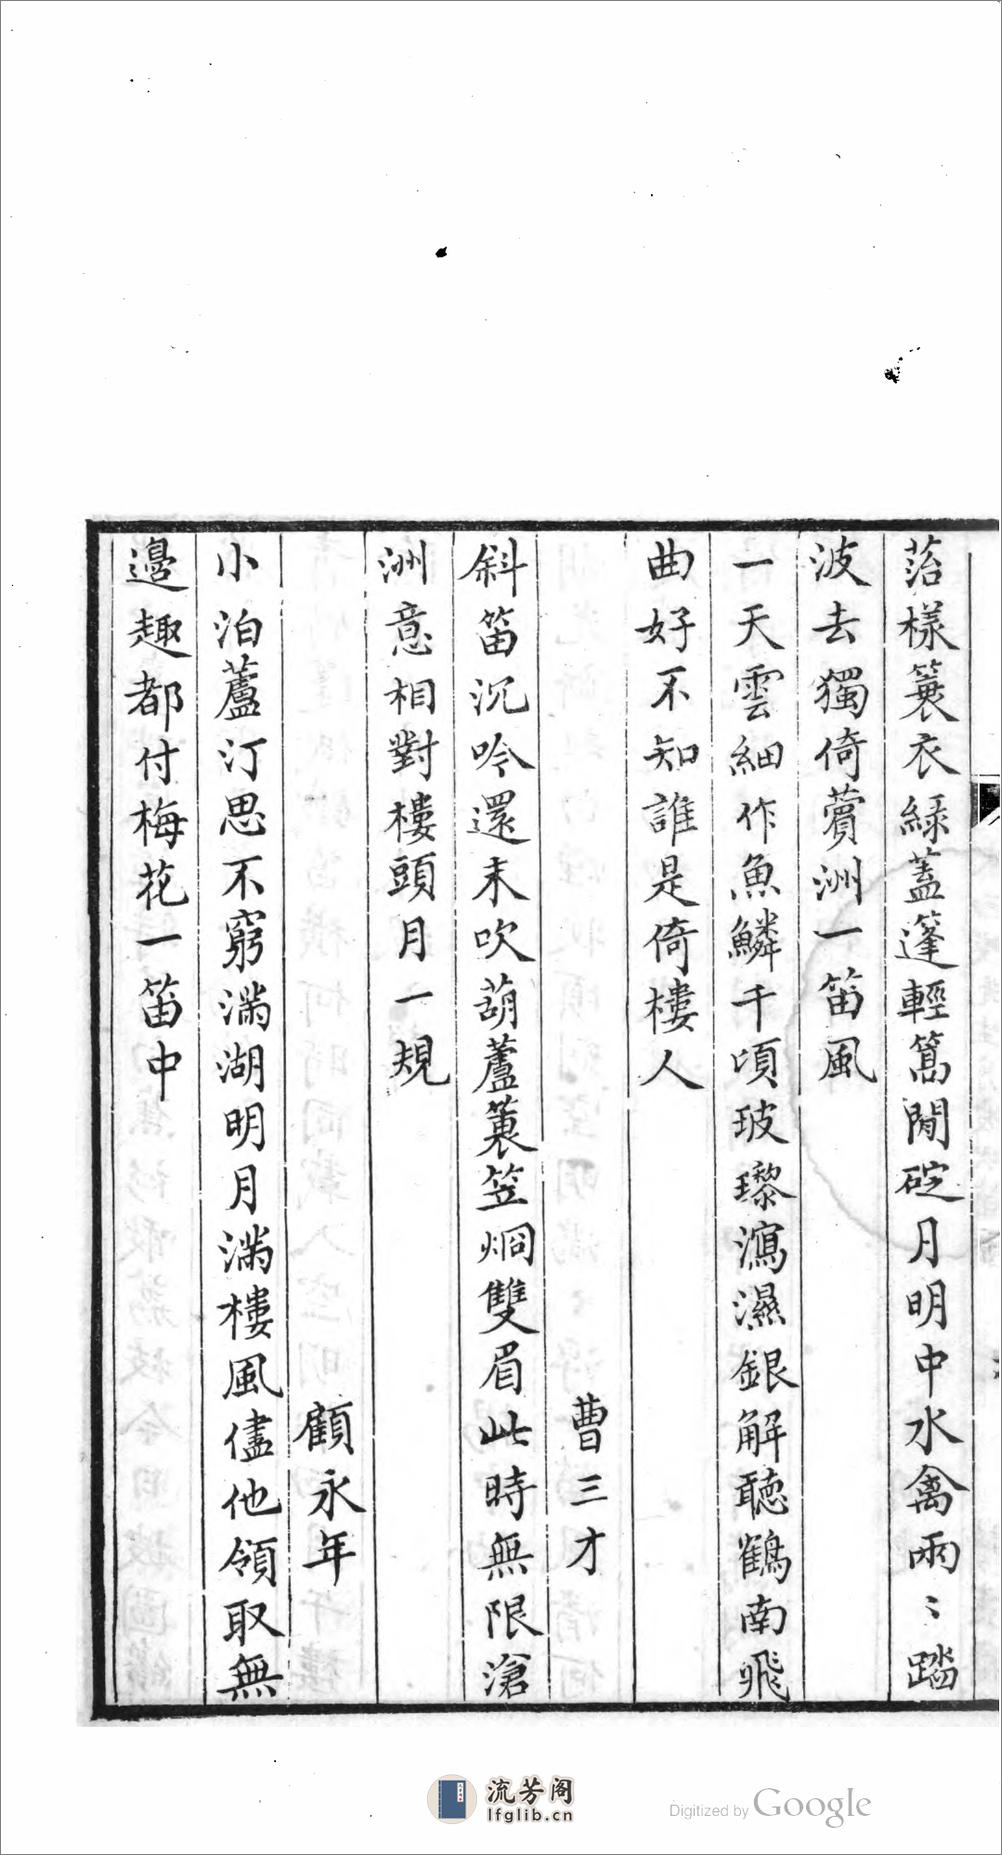 萡樣簑衣綠蓋篷輕篙閒碇月明中水禽兩〻踏
波去獨倚薲洲一笛風
一天雲細作魚鱗千頃玻瓈瀉濕銀解聽鶴南飛
曲好不知誰是倚樓人
曹三才
斜笛沉吟還未吹葫蘆蓑笠烱雙眉此時無限滄
洲意相對樓頭月一規
顧永年
小泊蘆汀思不窮滿湖明月滿樓風儘他領取無
邊趣都付梅花一笛中
流芳阁
lfglib.cn
Digitized by Google